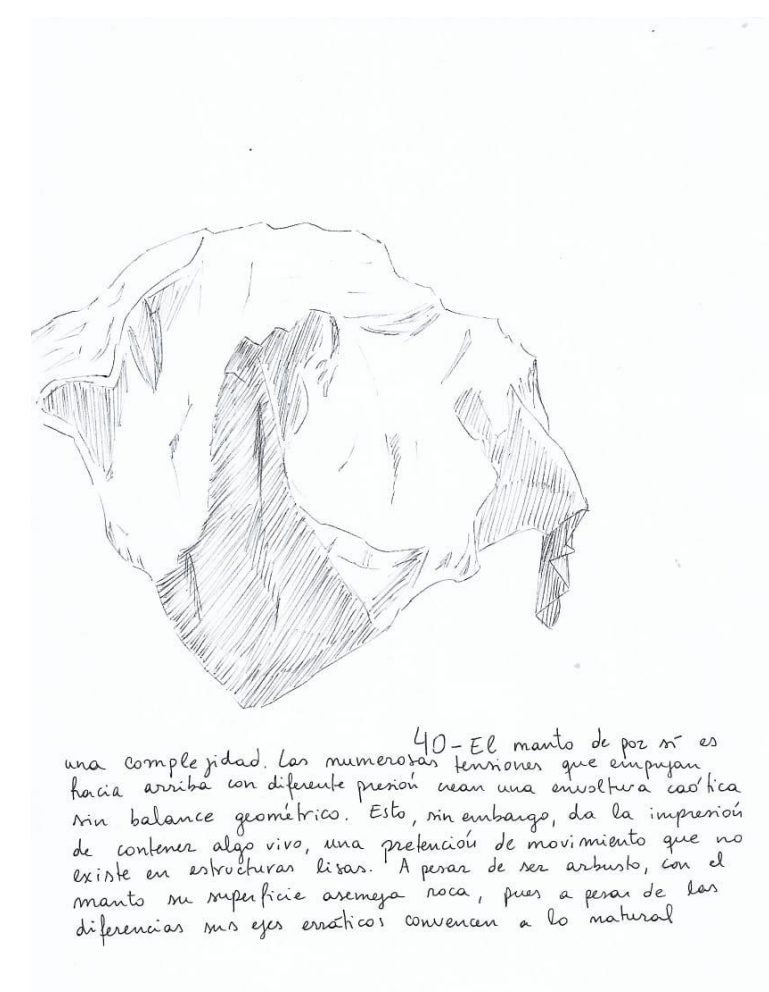 40-El manto de por sí es
una complejidad. Las numerosas tensiones que empujan
hacia arriba con diferente presión crean una envoltura caótica
sin balance geométrico. Esto, sin embargo, da la impresión
de contener algo vivo, una pretención de movimiento que no
existe en estructuras lisas. A pesar de ser arbusto, con el
manto su superficie asemeja roca, pues a pesar de las
diferencias sus ejes erráticos convencen a lo natural